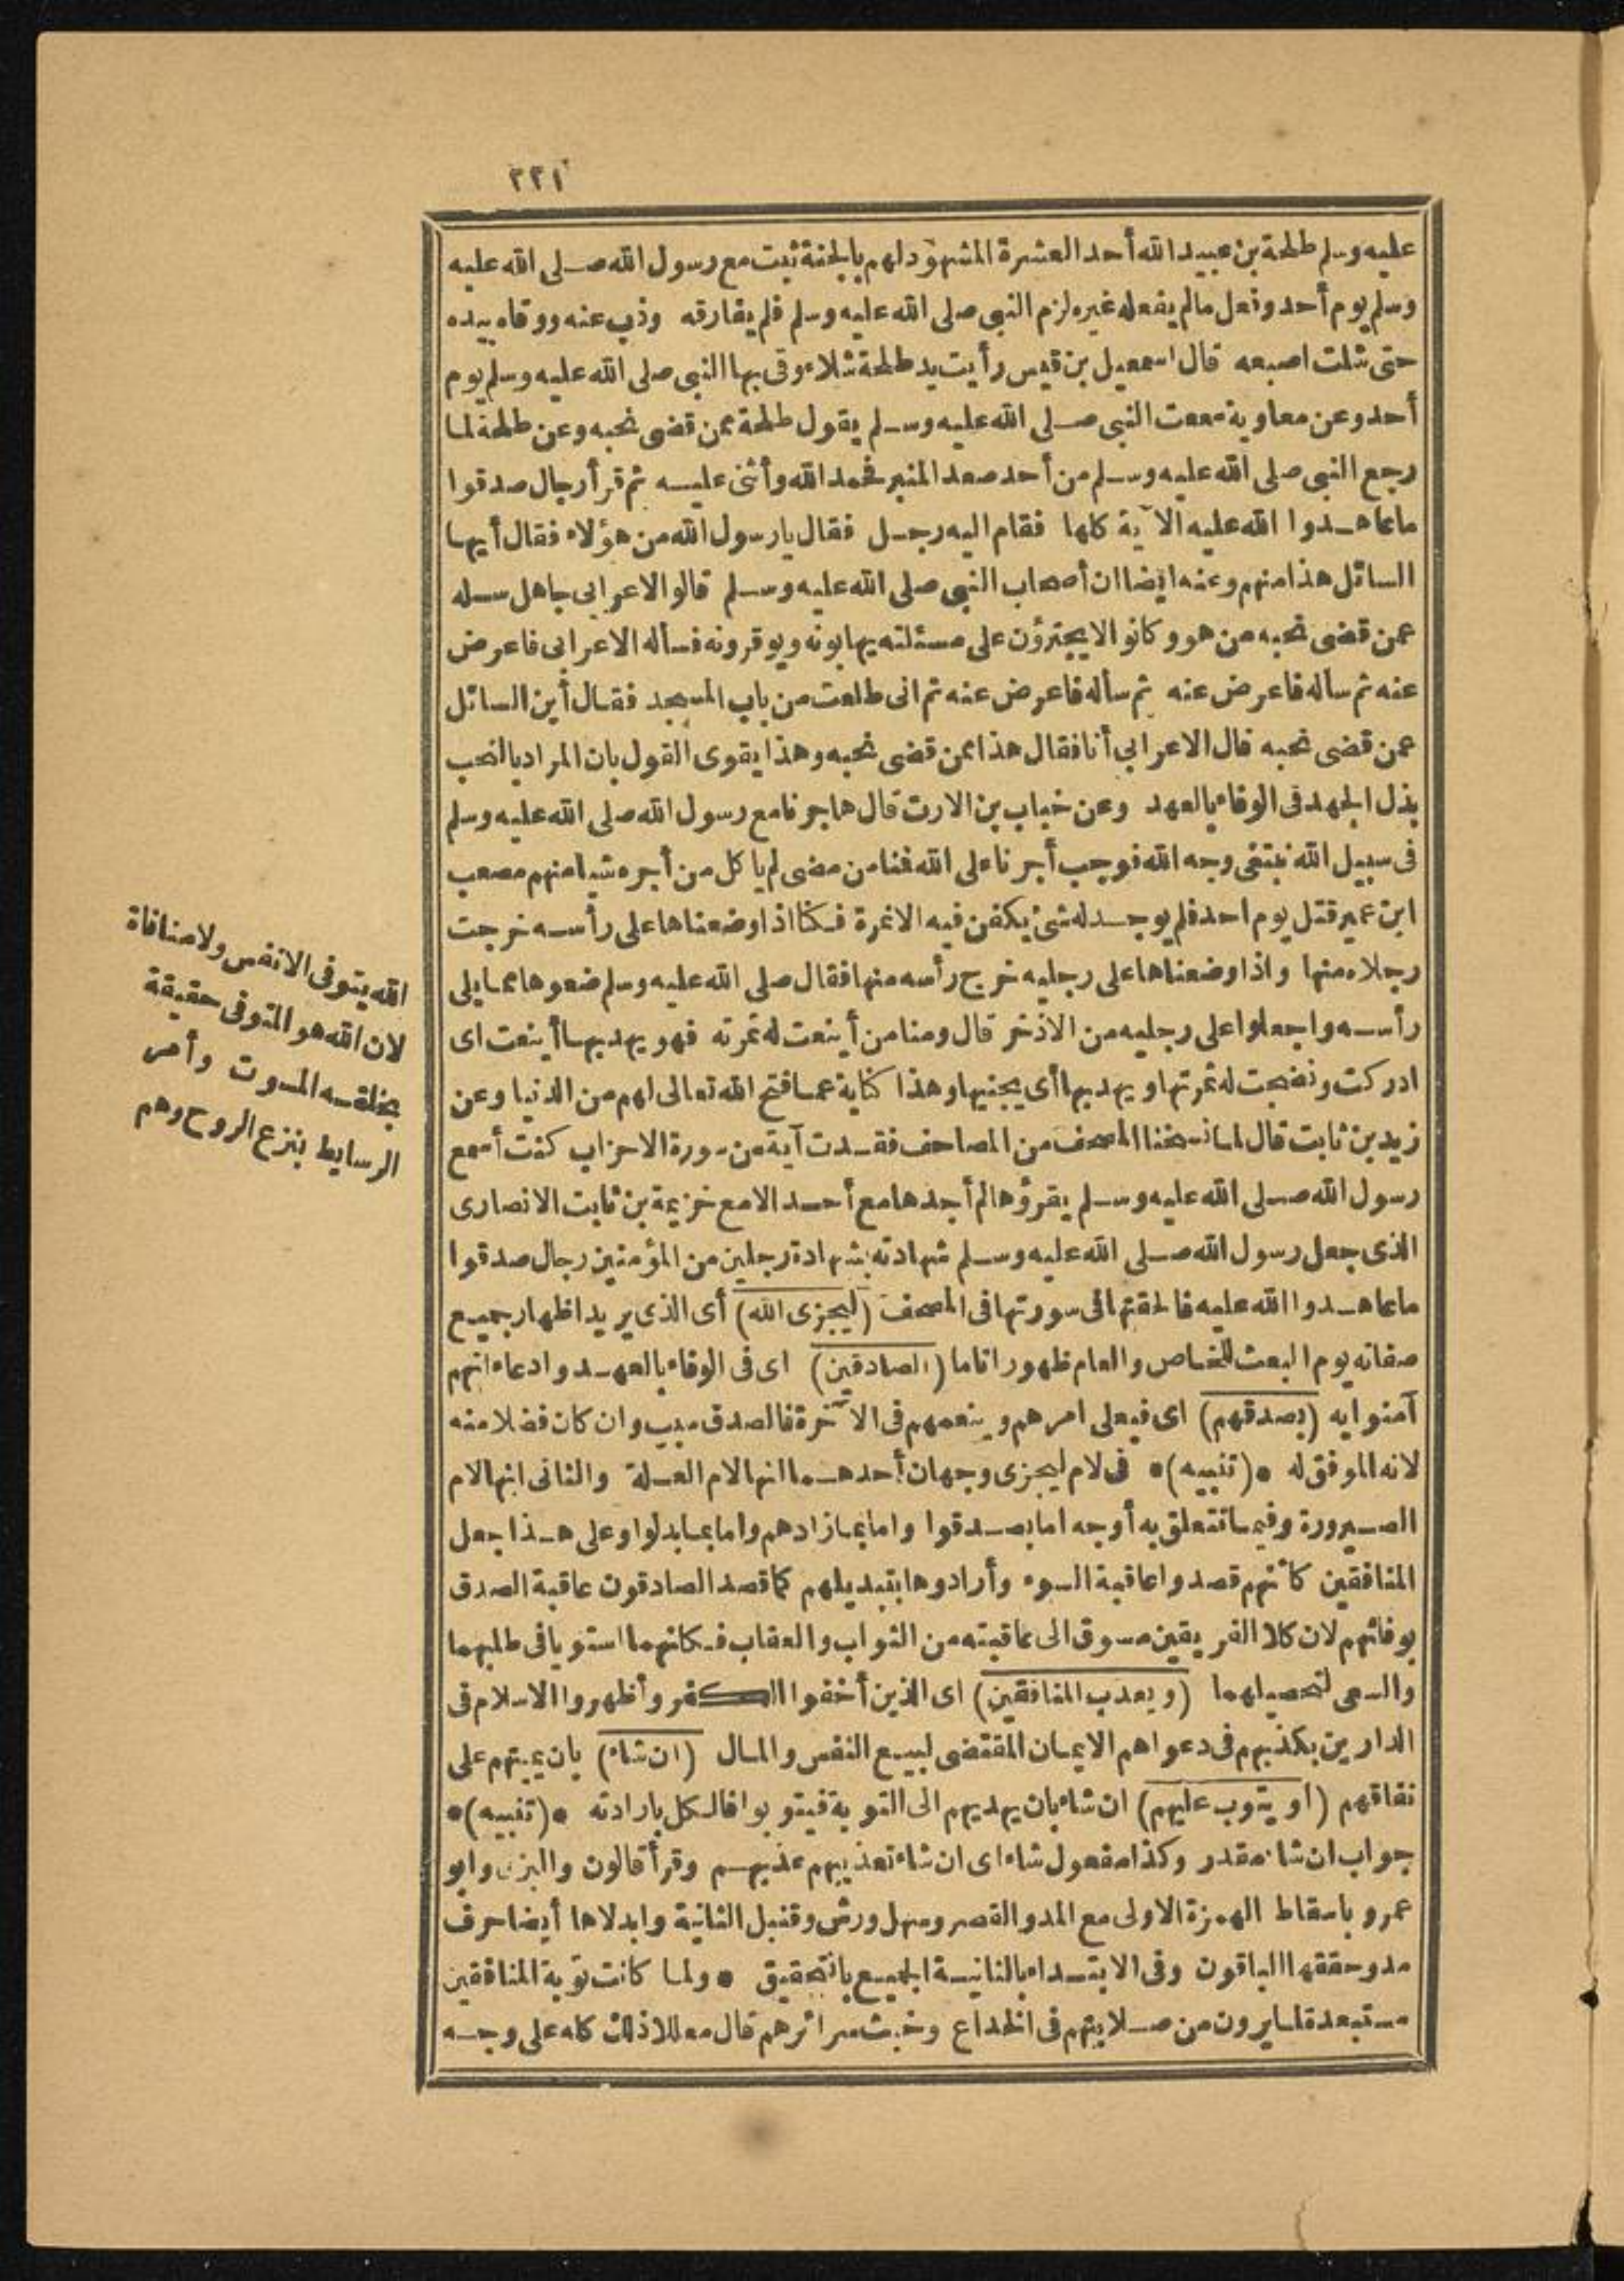 ٢٣١
عليه وسلم طلحة بن عبيد الله أحد العشرة المشهود لهم بالجنة ثبت مع رسول الله صلى الله عليه
وسلم يوم أحد وفعل مالم يفعله غيره لزم النبي صلى الله عليه وسلم فلم يفارقه وذب عنه ووقاه بيده
حتى شلت اصبعه قال اسمعيل بن قيس رأيت يد طلحة شلاء وقى بها النبي صلى الله عليه وسلم يوم
أحد وعن معاوية سمعت النبي صلى الله عليه وسلم يقول طلحة ممن قضى نحبه وعن طلحة لما
رجع النبي صلى الله عليه وسلم من أحد صعد المنبر فحمد الله وأثنى عليه ثم قرأ رجال صدقوا
ما عاهدوا الله عليه الآية كلها فقام اليه رجل فقال يا رسول الله من هؤلاء فقال أيها
السائل هذا منهم وعنه ايضا ان أصحاب النبي صلى الله عليه وسلم قالوا الاعرابي جاهل سله
عمن قضى نحبه من هو وكانوا لا يجترؤن على مسئلته يهابونه ويوقرونه فسأله الاعرابي فاعرض
عنه ثم سأله فاعرض عنه ثم سأله فاعرض عنه ثم اني طلعت من باب المسجد فقال أين السائل
عمن قضى نحبه قال الاعرابي أنا فقال هذا ممن قضى نحبه وهذا يقوى القول بان المراد بالنحب
بذل الجهد في الوفاء بالعهد وعن خباب بن الارت قال هاجرنا مع رسول الله صلى الله عليه وسلم
في سبيل الله نبتغى وجه الله فوجب أجرنا على الله فمنا من مضى لم ياكل من أجره شيا منهم مصعب
ابن عمير قتل يوم احد فلم يوجد له شئ يكفن فيه الا نمرة فكنا اذا وضعناها على رأسه خرجت
رجلاه منها واذا وضعناها على رجليه خرج رأسه منها فقال صلى الله عليه وسلم ضعوها مما يلى
رأسه واجعلوا على رجليه من الاذخر قال ومنا من أينعت له ثمرته فهو يهدبها أينعت اى
ادركت ونضجت له ثمرتها ويهدبها أى يجنيها وهذا كناية عما فتح الله تعالى لهم من الدنيا وعن
زيد بن ثابت قال لما نسخنا المصحف من المصاحف فقدت آية من سورة الاحزاب كنت أسمع
رسول الله صلى الله عليه وسلم يقرؤها لم أجدها مع أحد الا مع خزيمة بن ثابت الانصارى
الذى جعل رسول الله صلى الله عليه وسلم شهادته بشهادة رجلين من المؤمنين رجال صدقوا
ما عاهدوا الله عليه فالحقتها فى سورتها فى المصحف (ليجزى الله) أى الذى يريد اظهار جميع
صفاته يوم البعث للخاص والعام ظهورا تاما (الصادقين) اى فى الوفاء بالعهد وادعاء انهم
آمنوا به (بصدقهم) اى فيعلى امرهم وينعمهم فى الآخرة فالصدق سبب وان كان فضلا منه
لانه الموفق له * (تنبيه) * فى لام ليجزى وجهان أحدهما انها لام العلة والثانى انها لام
الصيرورة وفيما تتعلق به أوجه اما بصدقوا واما بما زادهم واما بما بدلوا وعلى هذا جعل
المنافقين كأنهم قصدوا عاقبة السوء وأرادوها بتبديلهم كما قصد الصادقون عاقبة الصدق
بوفائهم لان كلا الفريقين مسوق الى عاقبته من الثواب والعقاب فكانهما استويا فى طلبهما
والسعى لتحصيلهما (ويعذب المنافقين) اى الذين أخفوا الكفر وأظهروا الاسلام فى
الدارين بكذبهم فى دعواهم الايمان المقتضى لبيع النفس والمال (ان شاء) بان يميتهم على
نفاقهم (أو يتوب عليهم) ان شاء بان يهديهم الى التوبة فيتوبوا فالكل بارادته * (تنبيه) *
جواب ان شاء مقدر وكذا مفعول شاء اى ان شاء تعذيبهم عذبهم وقرأ قالون والبزى وابو
عمرو باسقاط الهمزة الاولى مع المد والقصر وسهل ورش وقنبل الثانية وابدلاها أيضا حرف
مد وحققها الباقون وفى الابتداء بالثانية الجميع بالتحقيق * ولما كانت توبة المنافقين
مستبعدة لما يرون من صلابتهم فى الخداع وخبث سرائرهم قال معللا ذلك كله على وجه
الله يتوفى الانفس ولا منافاة
لان الله هو المتوفى حقيقة
بخلقه الموت وأمر
الوسايط بنزع الروح وهم